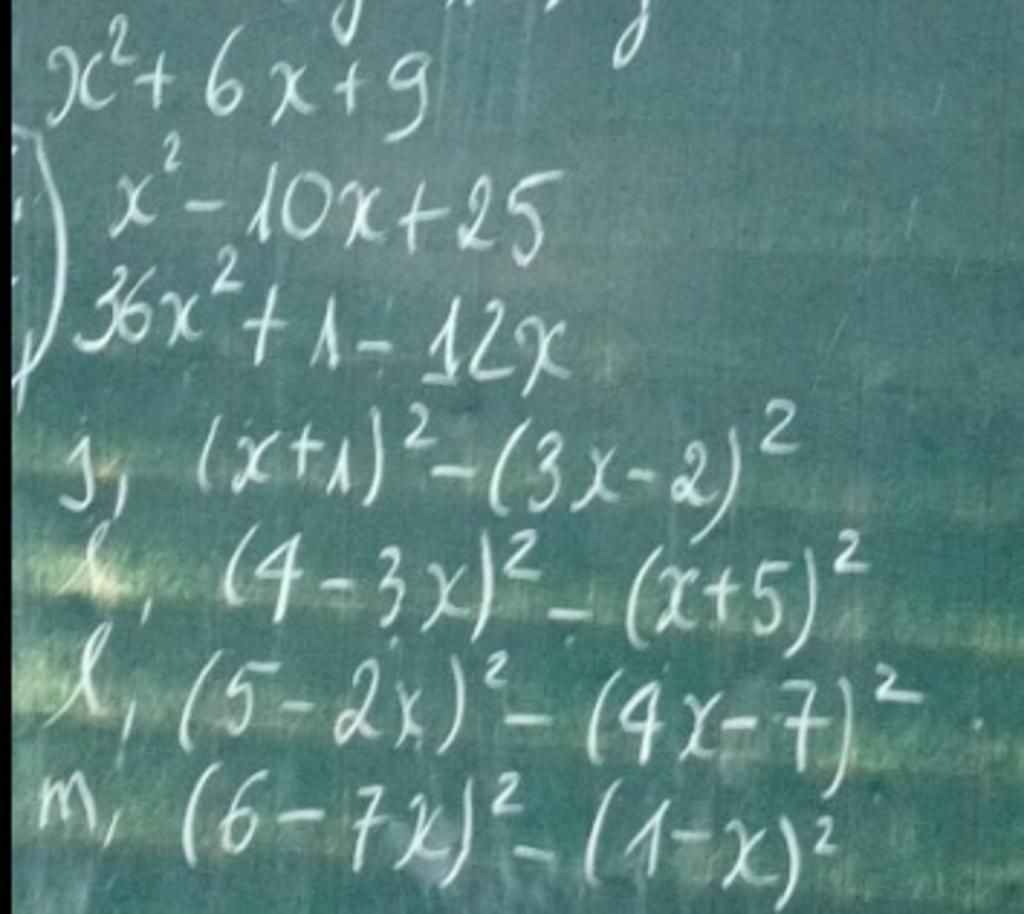 x² + 6x + 9
) x² - 10x + 25
36x² + 1 - 12x
j, (x+1)² - (3x-2)²
(4 - 3x)² - (x+5)²
l, (5 - 2x)² - (4x - 7)²
m, (6 - 7x)² - (1 - x)²